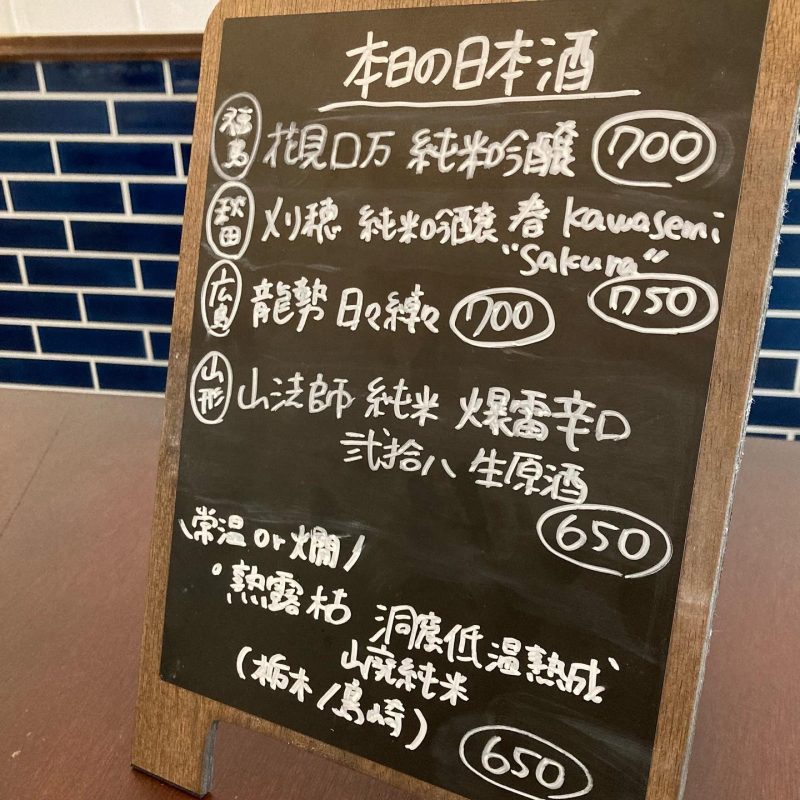 本日の日本酒
福島 花見ロ万 純米吟醸 700
秋田 刈穂 純米吟醸 春 kawasemi
"Sakura"
750
広島 龍勢 日々綽々 700
山形 山法師 純米 爆雷辛口
弐拾八 生原酒
650
\常温or燗/
・熱露枯 洞窟低温熟成
山廃純米
(栃木/島崎)
650